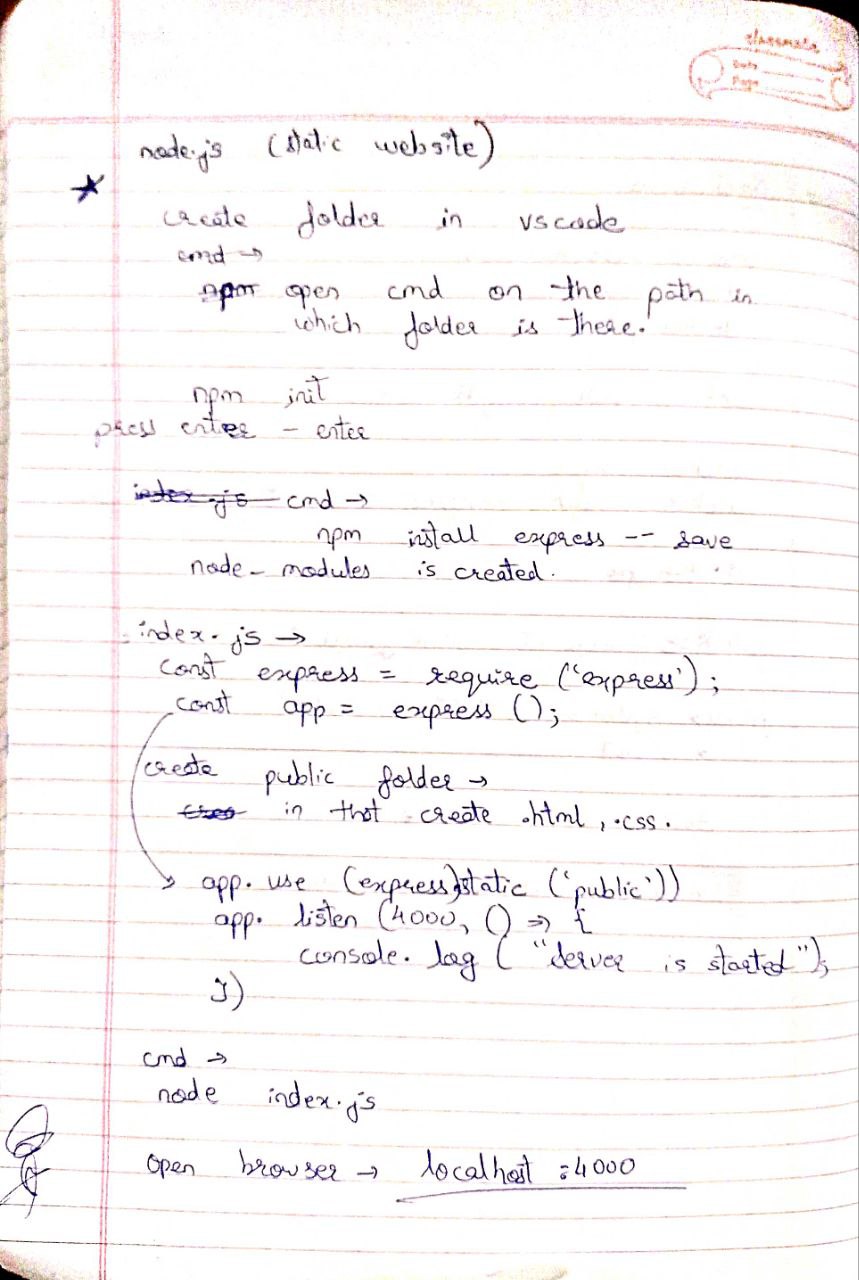 classmate
Date
Page
node.js (static website)
create folder in vscode
cmd →
open cmd on the path in
which folder is there.
npm init
press enter - enter
index.js cmd →
npm install express -- save
node_modules is created.
index.js →
const express = require ('express');
const app = express ();
create public folder →
in that create .html, .css.
app. use (express.static ('public'))
app. listen (4000, () => {
console. log ( "server is started");
})
cmd →
node index.js
open browser → localhost :4000